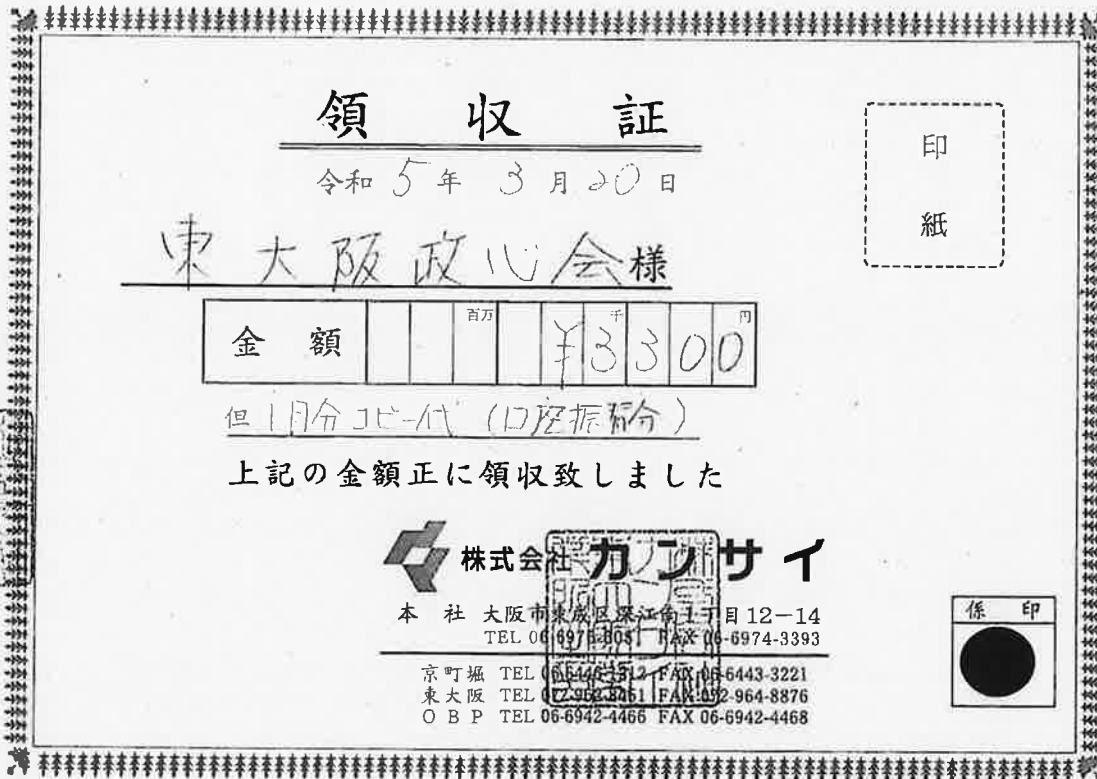 領収証
令和 5 年 3 月 20 日
印紙
東大阪政心会様
金額 百万 千 円 ¥3300
但 1月分コピー代 (口座振替分)
上記の金額正に領収致しました
株式会社 カンサイ
本 社 大阪市東成区深江南1丁目12-14
TEL FAX 06-6974-3393
京町堀 TEL FAX 06-6443-3221
東大阪 TEL FAX 072-964-8876
OBP TEL 06-6942-4466 FAX 06-6942-4468
係 印